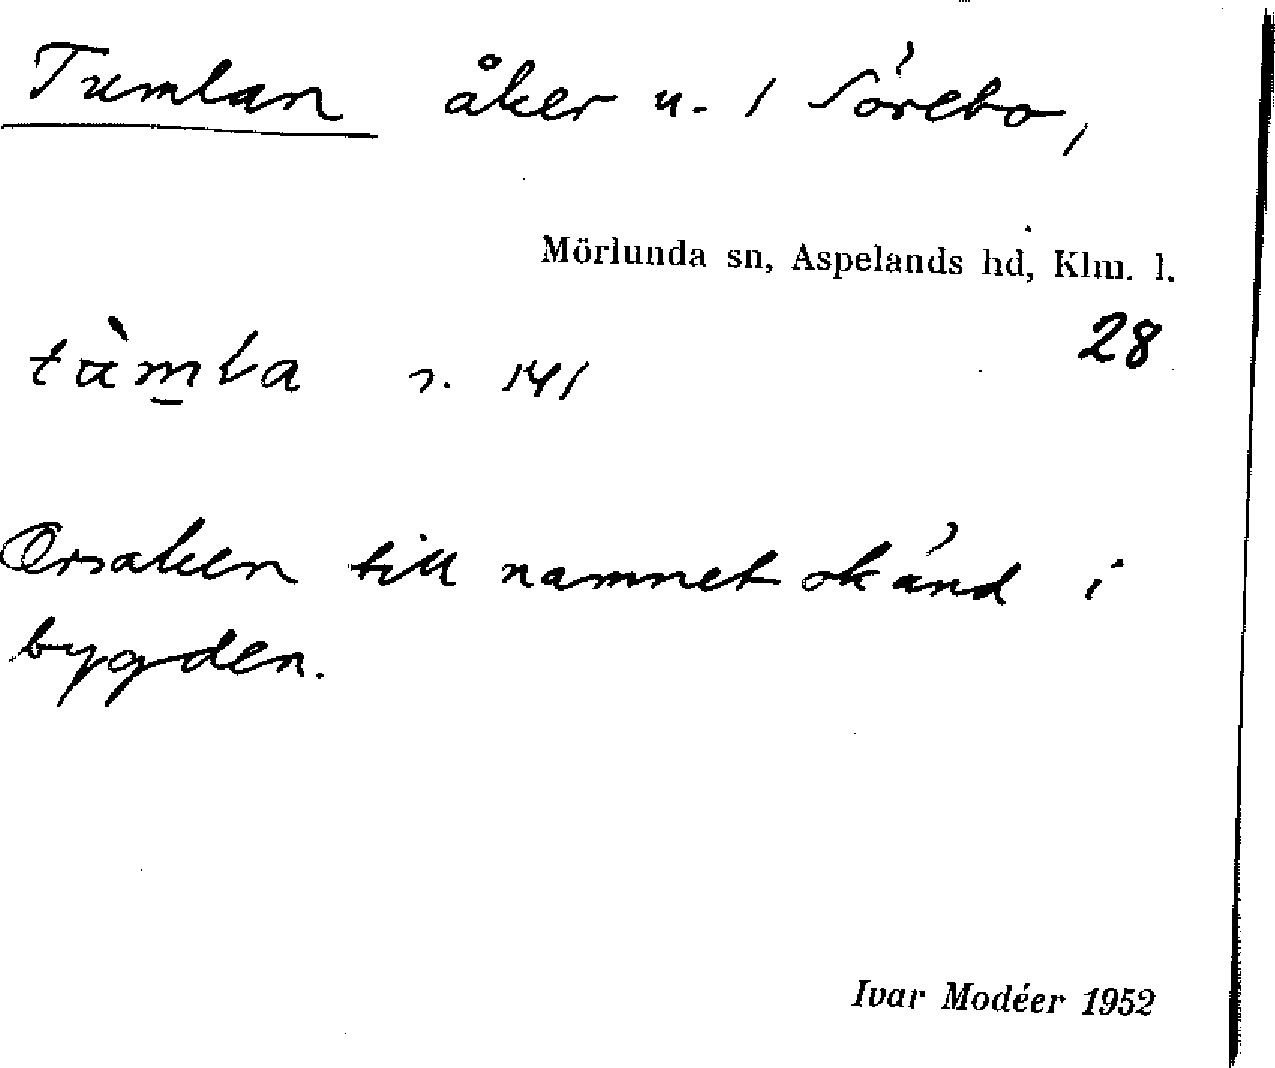 Tumlan åker u. 1 Sörebo,
Mörlunda sn, Aspelands hd, Klm. l.
28
tùmla s. 141
Orsaken till namnet okänd i
bygden.
Ivar Modéer 1952